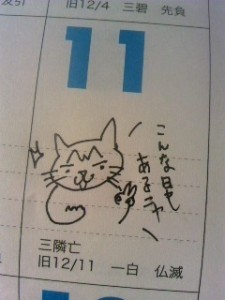 旧12/4 三碧 先負
11
こんな日も
あるニャ
三隣亡
旧12/11 一白 仏滅